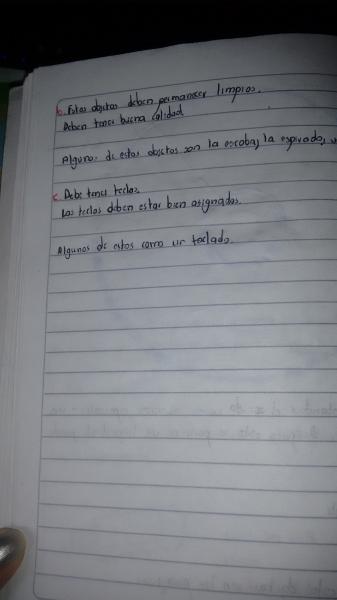 b. Estos objetos deben permanecer limpios.
Deben tener buena calidad
Algunos de estos objetos son la escoba, la aspirado,
c. Debe tener teclas.
Las teclas deben estar bien asignadas.
Algunos de estos como un teclado.